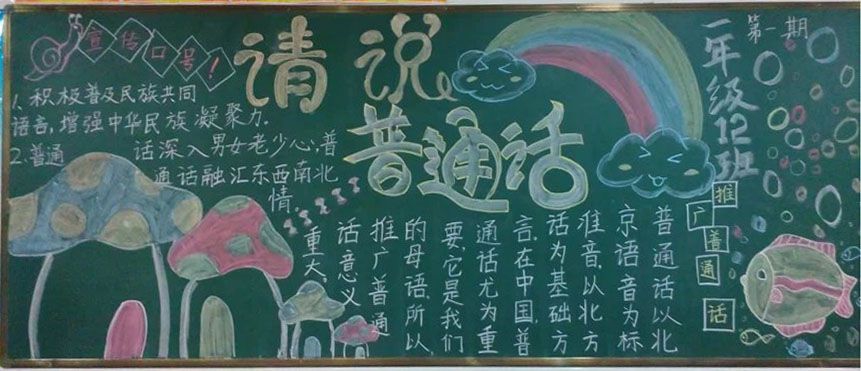 宣传口号！
请说
普通话
第一期
一年级12班
1、积极普及民族共同
语言,增强中华民族凝聚力.
2.普通话深入男女老少心,普
通话融汇东西南北
情。
推广普通话
普通话以北
京语音为标
准音,以北方
话为基础方
言,在中国,普
通话尤为重
要,它是我们
的母语,所以,
推广普通
话意义
重大。